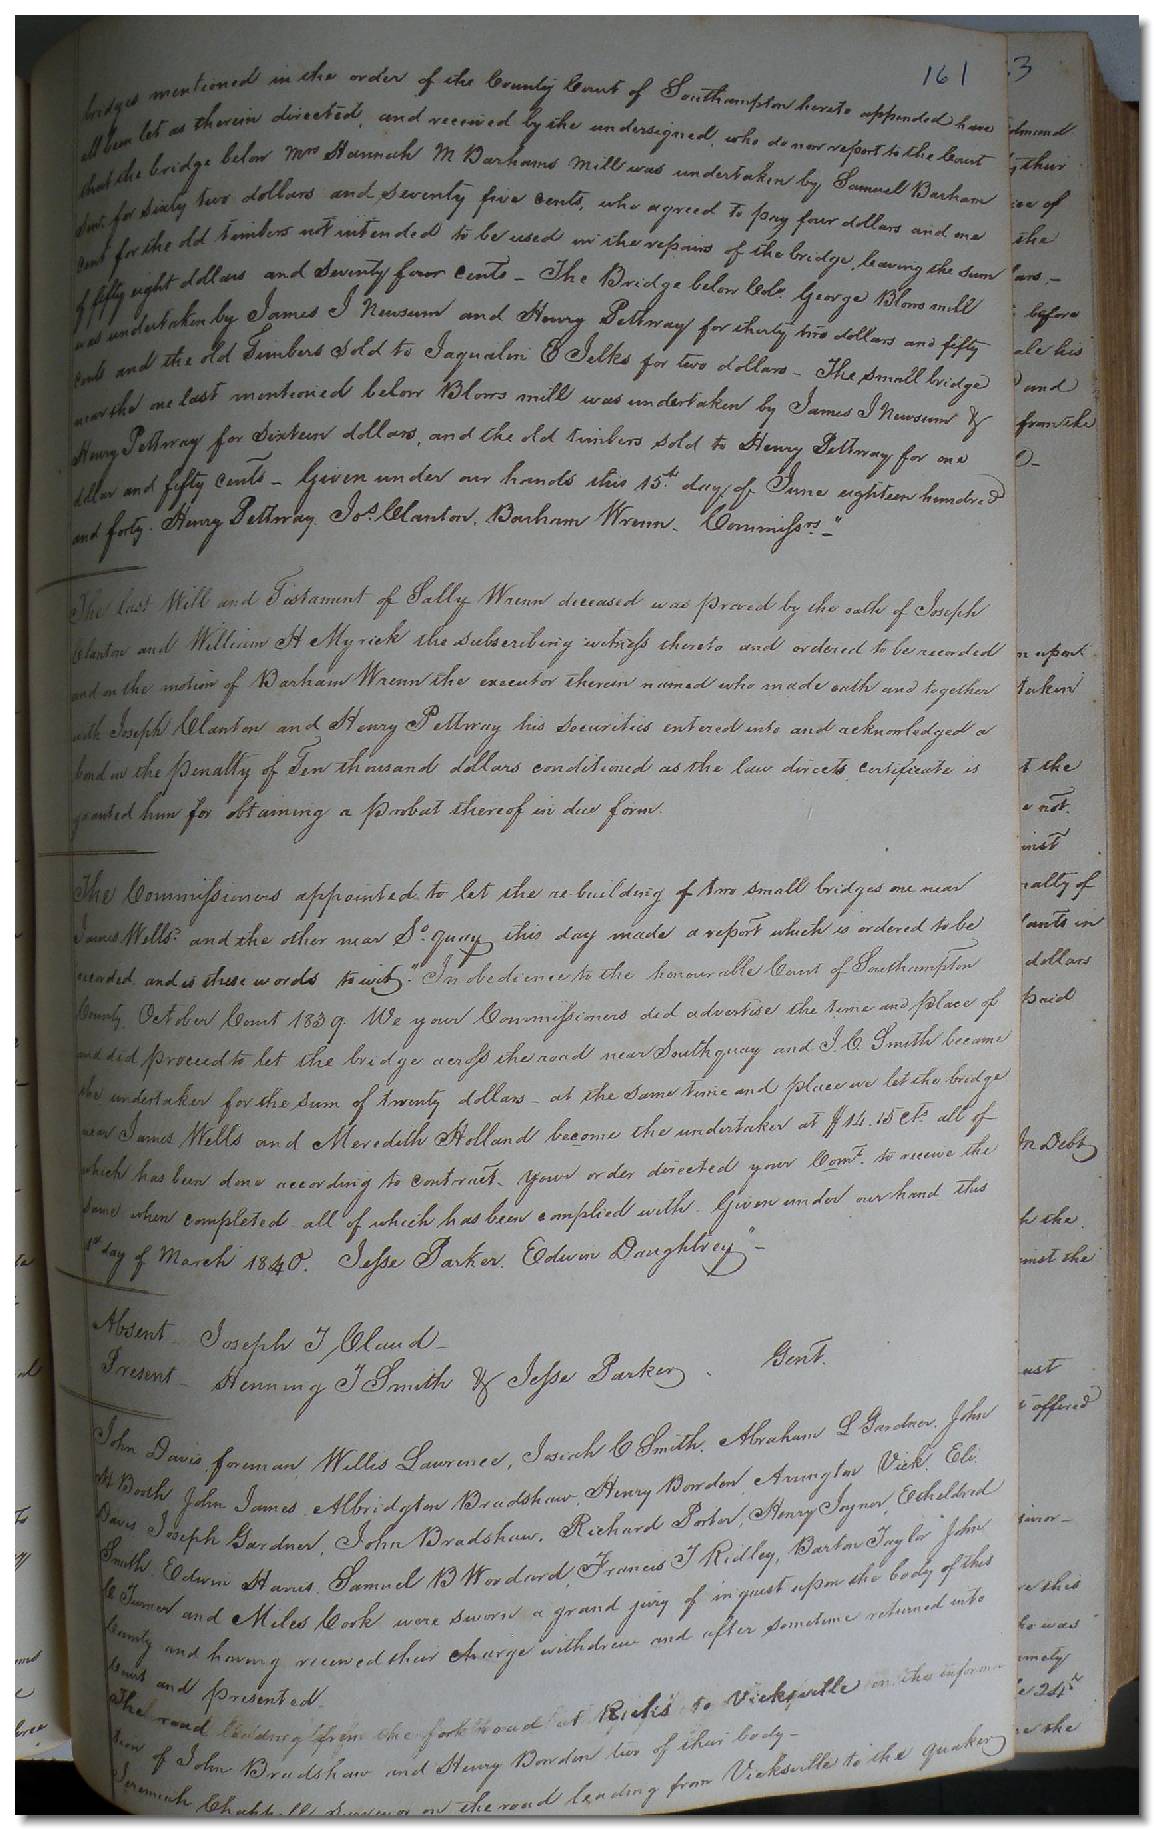 161
bridges mentioned in the order of the County Court of Southampton hereto appended have
all been let as therein directed, and received by the undersigned, who do now report to the Court
that the bridge below Mrs Hannah M Barhams Mill was undertaken by Samuel Barham
Senr. for sixty two dollars and seventy five cents, who agreed to pay four dollars and one
cent for the old timbers not intended to be used in the repairs of the bridge, leaving the sum
of fifty eight dollars and seventy four cents – The Bridge below Colo. George Blows mill
was undertaken by James I Newsum and Henry Pettway for thirty two dollars and fifty
cents and the old Timbers sold to Jaqualin C Jelks for two dollars – The small bridge
near the one last mentioned below Blows mill was undertaken by James I Newsum &
Henry Pettway for Sixteen dollars, and the old timbers sold to Henry Pettway for one
dollar and fifty cents – Given under our hands this 15th day of June eighteen hundred
and forty. Henry Pettway. Jos. Clanton. Barham Wrenn. Commissrs."–
The last Will and Testament of Sally Wrenn deceased was proved by the oath of Joseph
Clanton and William H Myrick the subscribing witness thereto and ordered to be recorded
and on the motion of Barham Wrenn the executor therein named who made oath and together
with Joseph Clanton and Henry Pettway his securities entered into and acknowledged a
bond in the penalty of Ten thousand dollars conditioned as the law directs, certificate is
granted him for obtaining a probat thereof in due form.
The Commissioners appointed to let the re-building of two small bridges one near
James Wells's and the other near So. quay this day made a report which is ordered to be
recorded, and is these words to wit, "In obedience to the honourable Court of Southampton
County, October Court 1839. We your Commissioners did advertise the time and place of
and did proceed to let the bridge across the road near Southquay and J. C. Smith became
the undertaker for the sum of twenty dollars – at the same time and place we let the bridge
near James Wells and Meredith Holland become the undertaker at $14.15 cts. all of
which has been done according to contract. Your order directed your Comrs. to receive the
same when completed all of which has been complied with. Given under our hand this
1st day of March 1840. Jesse Parker. Edwin Daughtrey"–
Absent – Joseph T Claud –
Present – Henning T Smith & Jesse Parker. Gent.
John Davis foreman, Willis Lawrence, Josiah C Smith, Abraham L Gardner, John
W Booth John James, Albridgton Bradshaw, Henry Bowden, Arrington Vick, Eli
Davis, Joseph Gardner, John Bradshaw, Richard Porter, Henry Joyner, Etheldred
Smith, Edwin Harris, Samuel B Woodard, Francis T Ridley, Barton Taylor John
C Turner and Miles Cork were sworn a grand jury of inquest upon the body of this
County and having received their charge withdrew and after sometime returned into
Court and presented.
The road leading from the fork road at Rick's to Vicksville on the informa
tion of John Bradshaw and Henry Bowden two of their body –
Jeremiah Surveyor on the road leading from Vicksville to the quaker